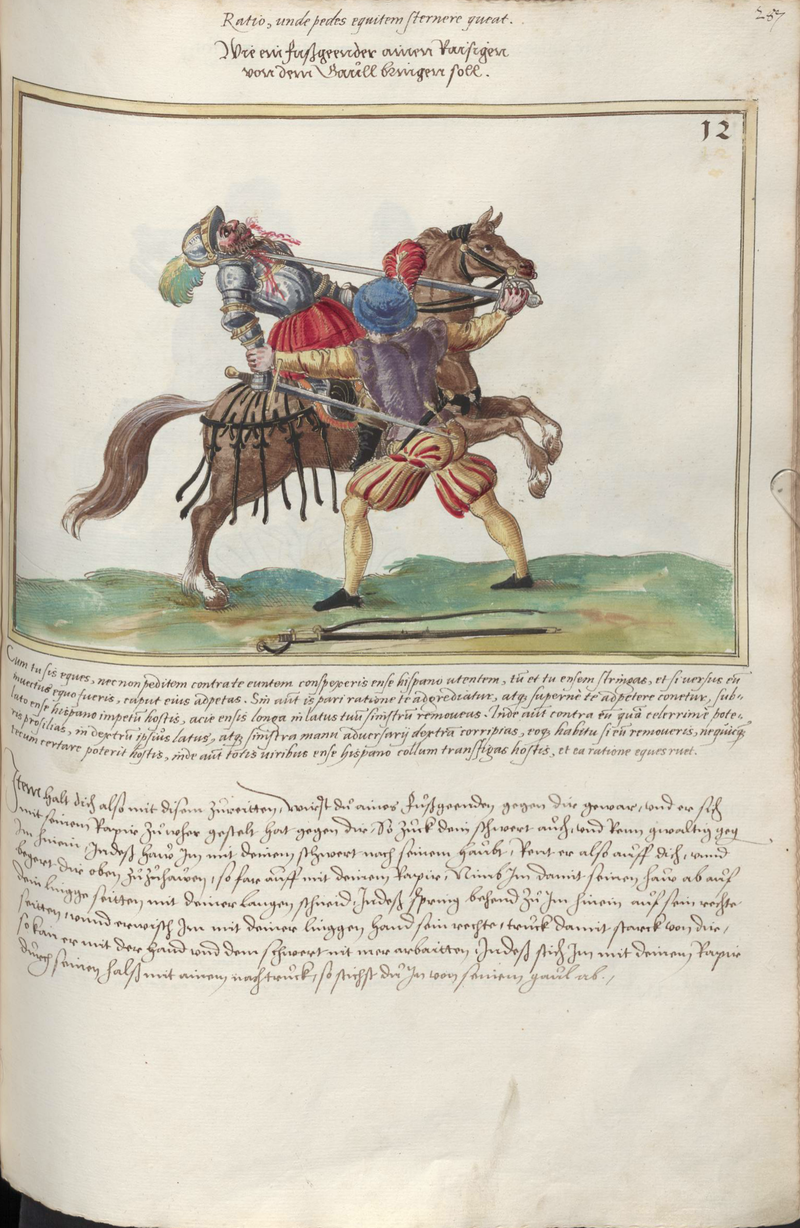 257
Ratio, unde pedes equitem sternere queat.
Wie ein fuͤßgeender ainen Raisigen
von dem Gaull bringen soll.
12
Cum tu sis eques, nec non peditem contra te euntem conspexeris ense hispano utentem, tū et tu ensem stringas, et si versus eū
invectus equo fueris, caput eius adpetas. Sin aūt is pari ratione te adgrediatur, atq; supernè te adpetere conetur, sub-
lato ense hispano impetū hostis, acie ensis longa in latus tuū sinistrū removeas. Inde aūt contra eū quā celerrimè pote-
ris prosilias, in dextrū ipsius latus, atq; sinistra manu adversarij dextrā corripias, eoq; habitu si eū removeris, nequicq;
tecum certare poterit hostis, inde aūt totis viribus ense hispano collum transfigas hostis, et ea ratione eques ruet.
Item halt dich also mit disem zureitten, Wirst du aines fuͤßgeenden gegen dir gewar, und er sich
mit seinem Rapir zuvoher gestelt hat gegen dir, So Zuck dein schwert auch, und Renn gwaltig geg
Im hinein, Indeß haw Im mit deinem schwert nach seinem haubt, Rent er also auff dich, unnd
begert dir oben zuzuhawen, so far auff mit deinem Rapir, Nimb Im damit seinen haw ab auf
dein lingge seitten mit deiner langen schneid, Indeß spring behend zu Im hinein auf sein rechte
seitten, unnd erwisch Im mit deiner linggen hand sein rechte, truck damit starck von dir,
so kan er mit der hand und dem schwert nit mer arbaitten, Indeß stich Im mit deinem Rapir
durch seinen halß mit ainem nachtruck, so stichst du In von seinem gaul ab.